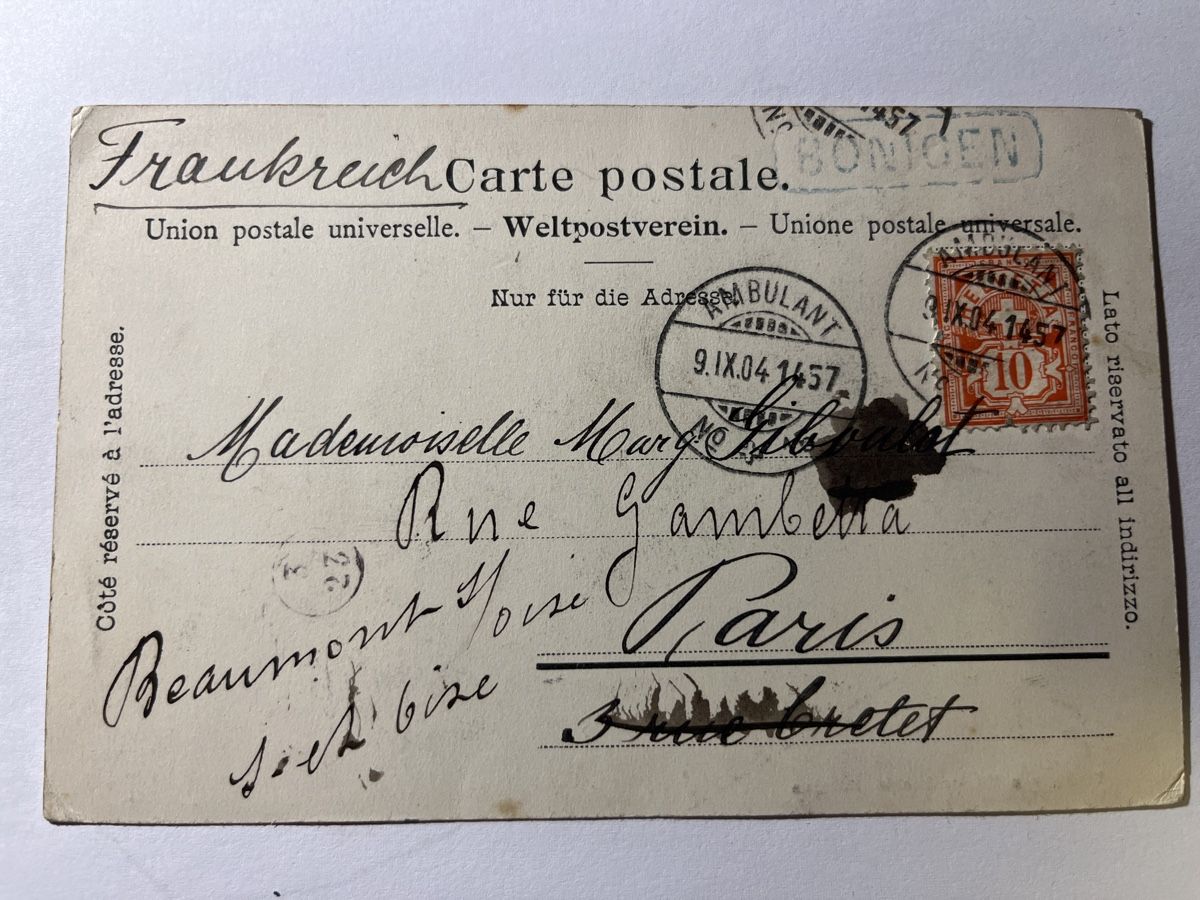 1457
BÖNIGEN
Frankreich Carte postale.
Union postale universelle. – Weltpostverein. – Unione postale universale.
Nur für die Adresse.
AMBULANT
9.IX.04 1457
No
AMBULAN
9.IX.04 1457
No
FRANCO
10
Côté réservé à l'adresse.
Lato riservato all indirizzo.
Mademoiselle Marg
Rue Gambetta
22
3
Beaumont s/oise
Paris
S. et Oise
3 rue Cretet